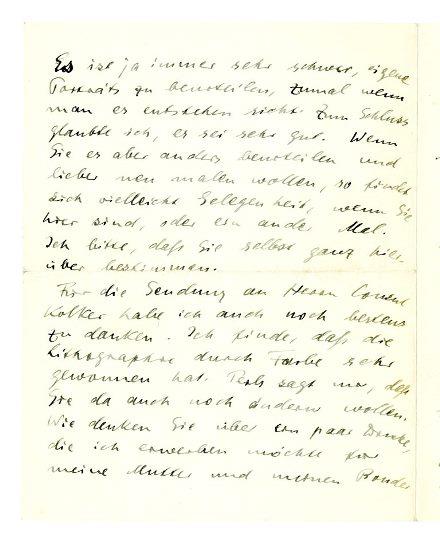 Es ist ja immer sehr schwer, eigene
Portraits zu beurteilen, zumal wenn
man es entstehen sieht. Zum Schluss
glaubte ich, es sei sehr gut. Wenn
Sie es aber anders beurteilen und
lieber neu malen wollen, so findet
sich vielleicht Gelegenheit, wenn Sie
hier sind, oder ein ander Mal.
Ich bitte, daß Sie selbst ganz hier-
über bestimmen.
Für die Sendung an Herrn Consul
Kolker habe ich auch noch bestens
zu danken. Ich finde, daß die
Lithographie durch Farbe sehr
gewonnen hat. Perls sagt mir, daß
Sie da auch noch ändern wollen.
Wie denken Sie über ein paar Drucke,
die ich erwerben möchte für
meine Mutter und meinen Bruder